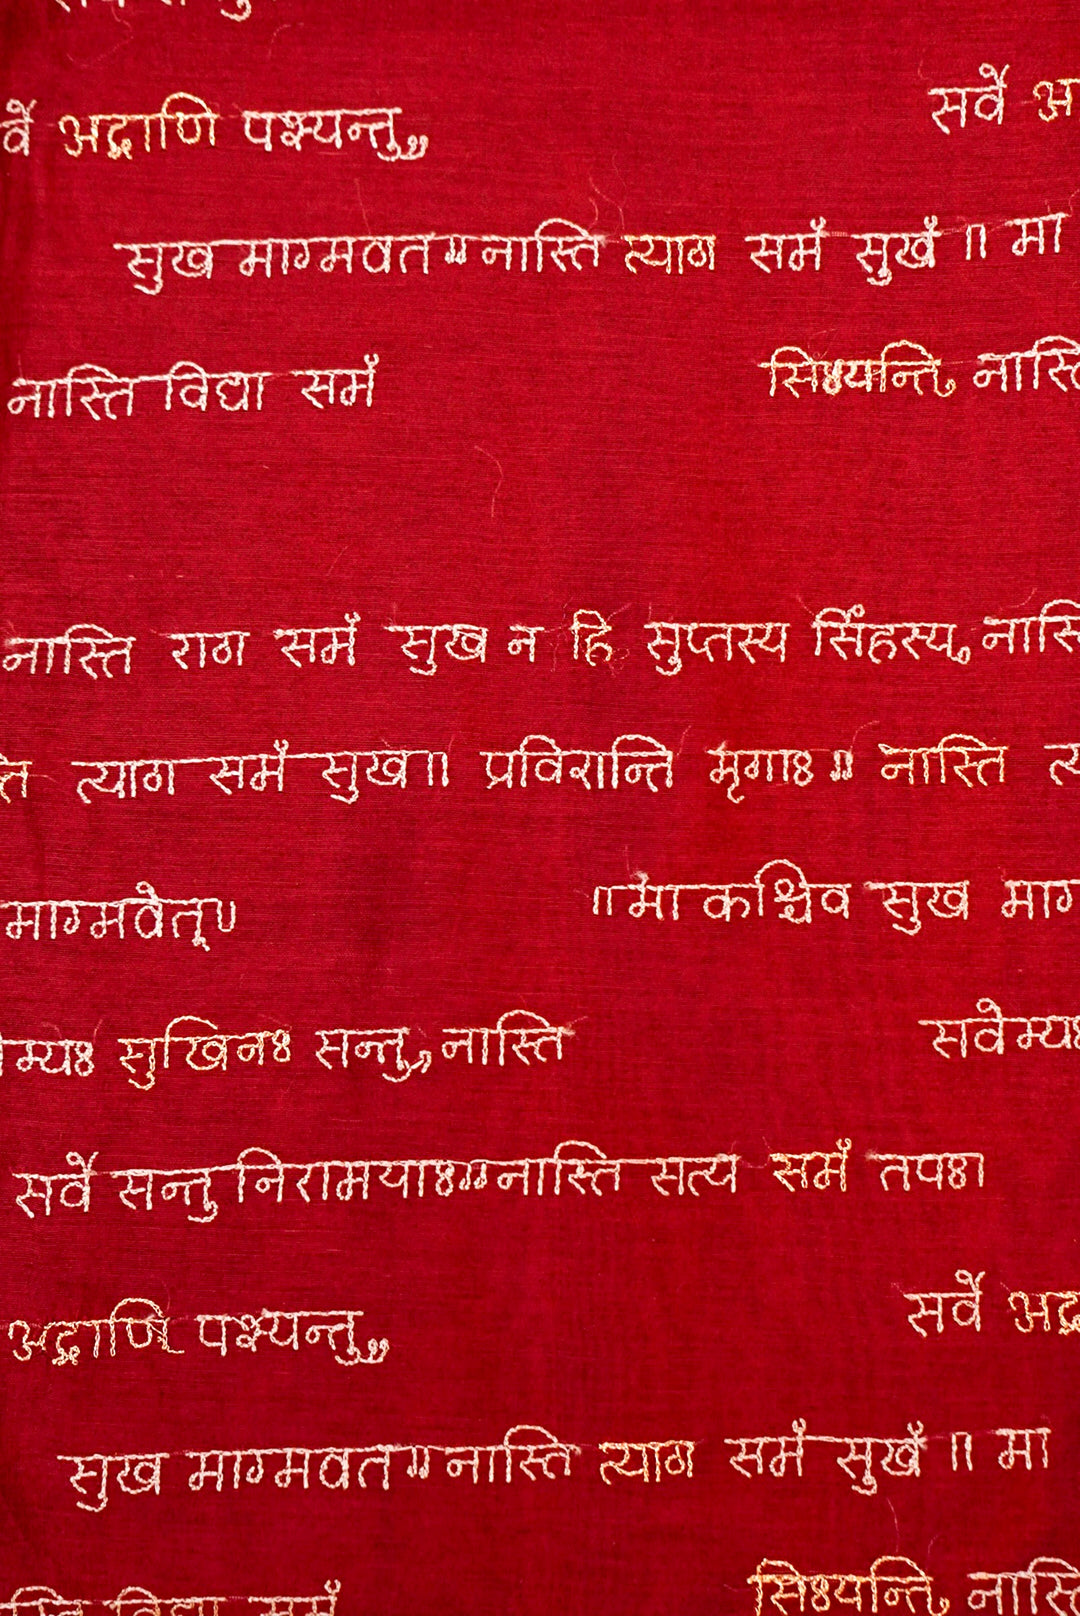 र्वे अद्राणि पश्यन्तु,, सर्वे
सुख मागमवत ॥ नास्ति त्याग समँ सुखँ ॥ मा
नास्ति विद्या समँ सिध्यन्ति, नास्ति
नास्ति राग समँ सुख न हि सुप्तस्य सिंहस्य, नास्ति
त्याग समँ सुख ॥ प्रविशन्ति मृगाः ॥ नास्ति
मागमवेत् ॥ ॥ मा कश्चिव सुख माग
सुखिनः सन्तु, नास्ति सवेम्यः
सर्वे सन्तु निरामयाः ॥ नास्ति सत्य समँ तपः।
अद्राणि पश्यन्तु,, सर्वे अद्रा
सुख मागमवत ॥ नास्ति त्याग समँ सुखँ ॥ मा
विद्या समँ सिध्यन्ति, नास्ति